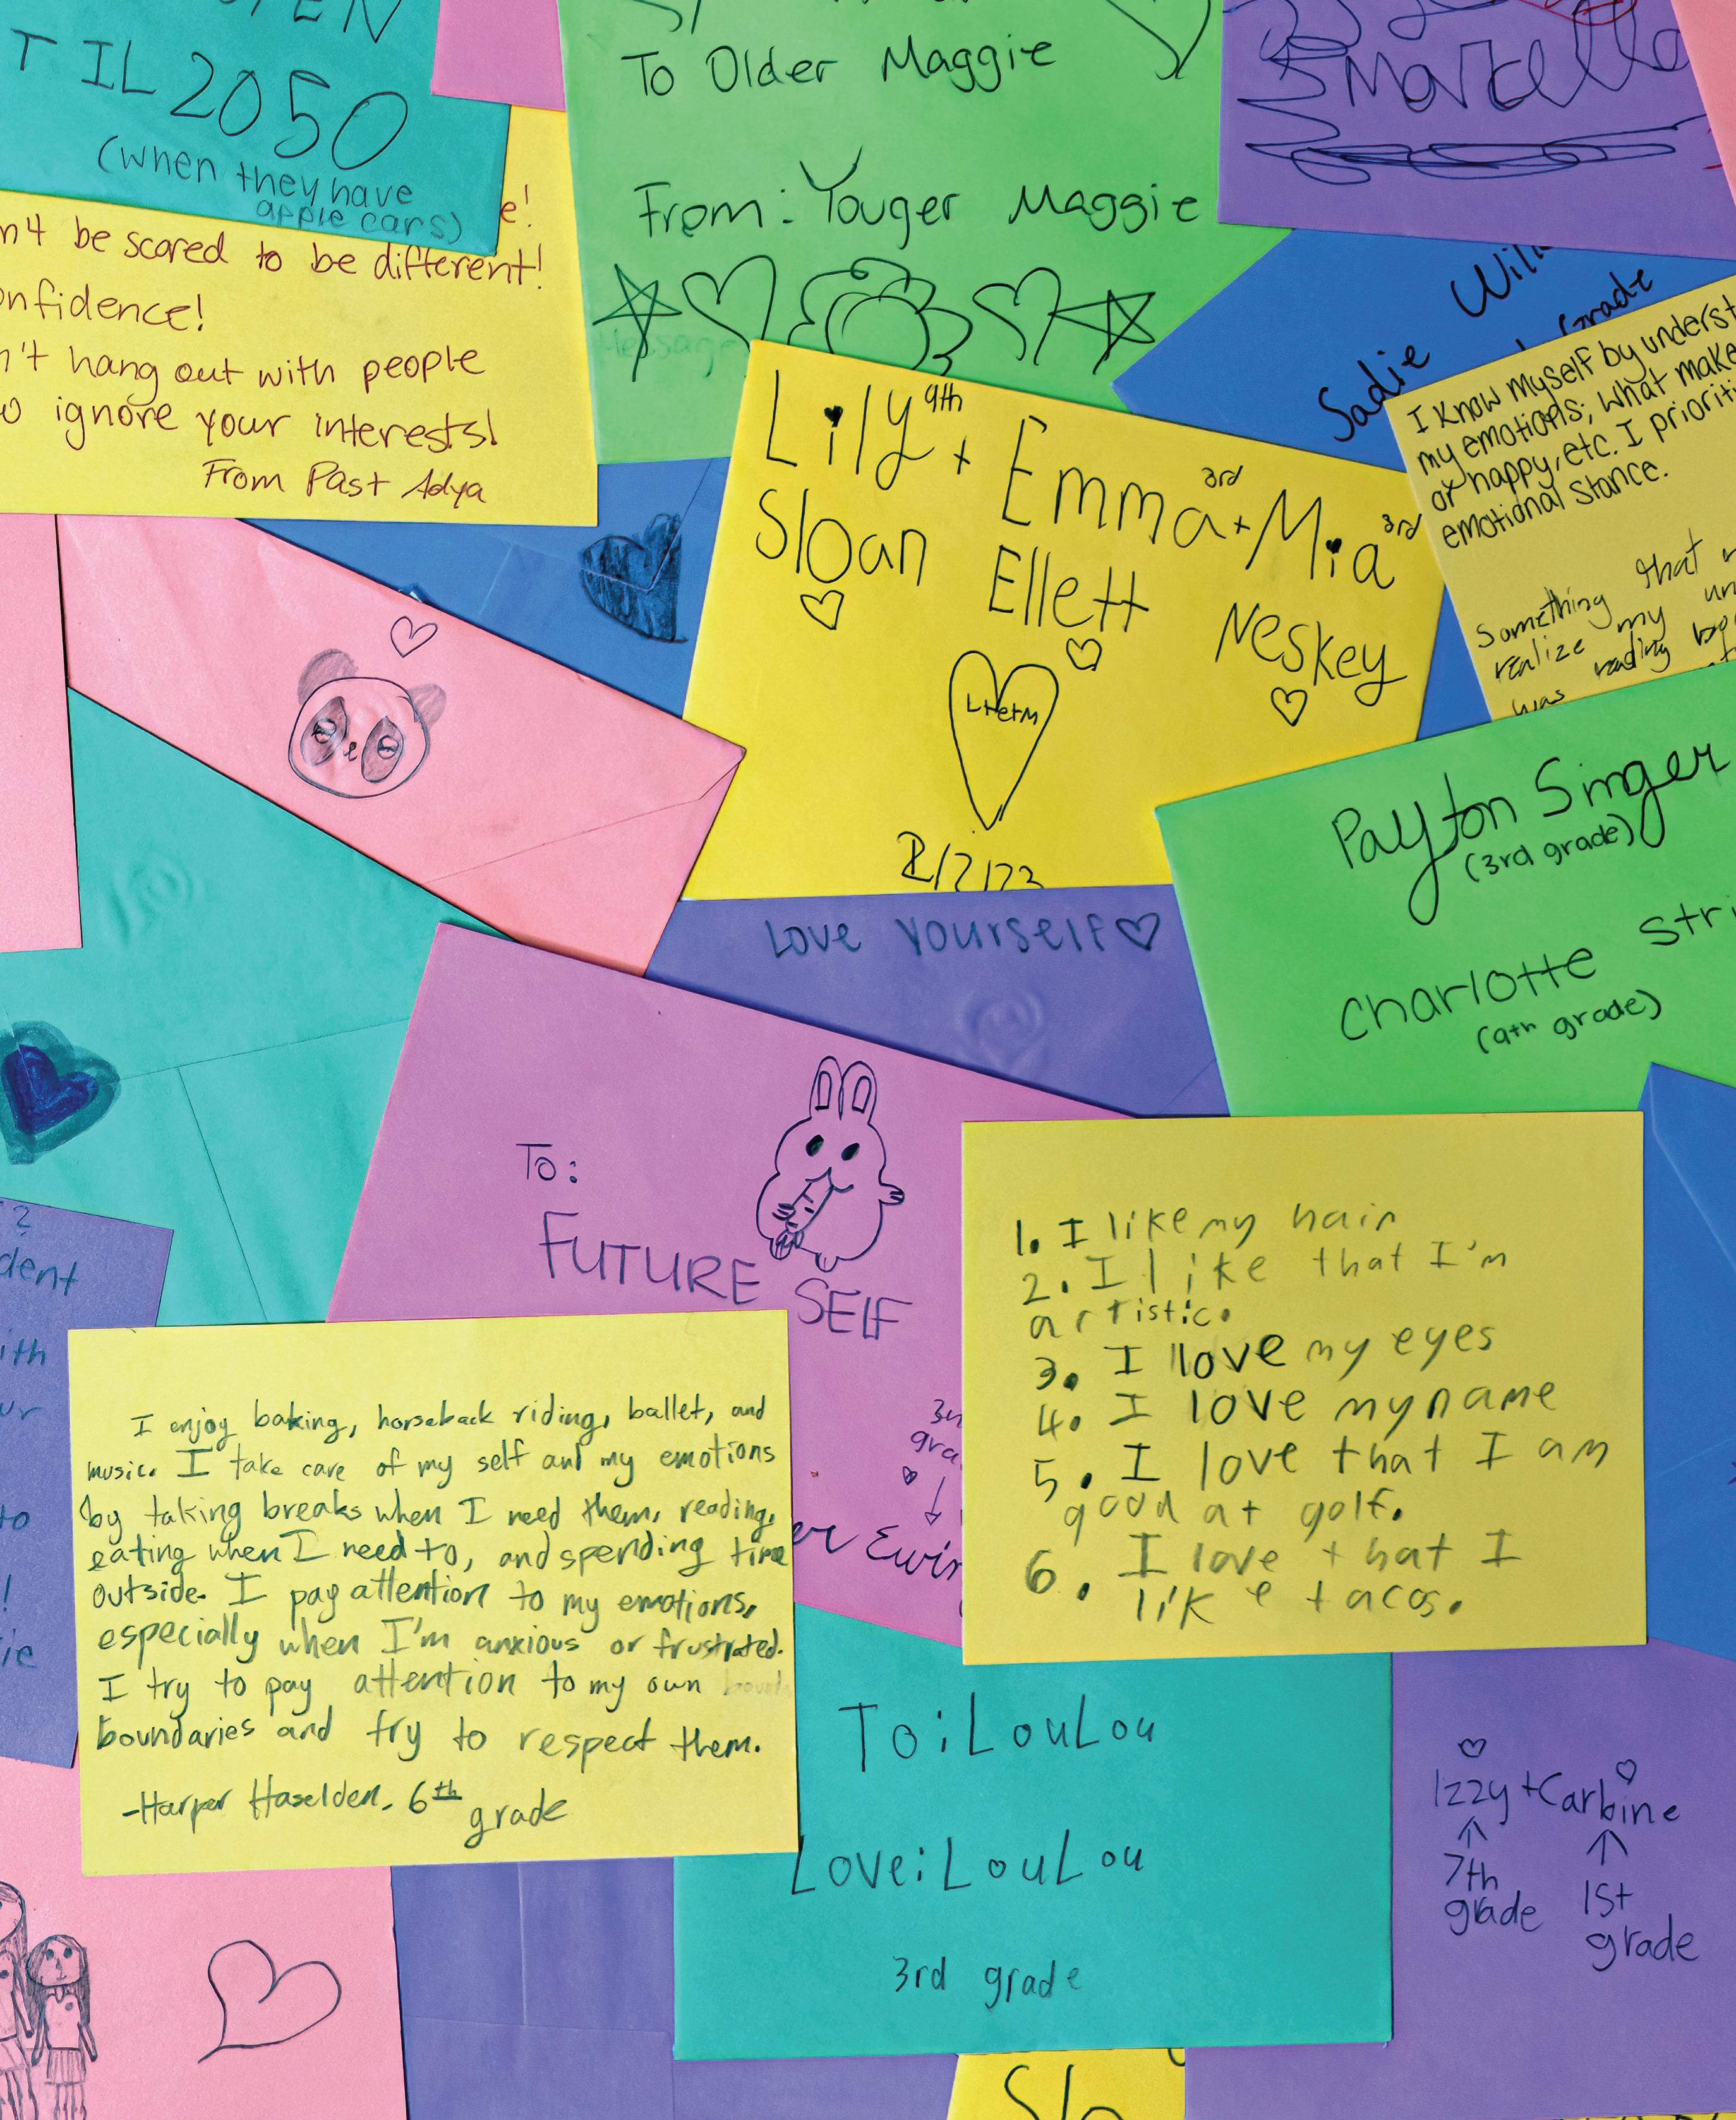 TIL 2050
(when they have
apple cars)
e!
be scared to be different!
onfidence!
n't hang out with people
ignore your interests!
From Past Adya
To Older Maggie
From: Youger Maggie
Message
Marcella
Sadie
Grade
I know myself by underst
my emotions; what make
or happy, etc. I prioriti
emotional stance.
Something that
realize my un
was reading
was
Lily 9th + Emma 3rd + Mia 3rd
Sloan Ellett Neskey
L+E+M
2/7/23
Payton Singer
(3rd grade)
Charlotte Stri
(9th grade)
Love Yourself
To:
FUTURE SELF
?
dent
ith
ur
to
!
ie
1. I like my hair
2. I like that I'm
artistic.
3. I love my eyes
4. I love my name
5. I love that I am
good at golf.
6. I love that I
like tacos.
I enjoy baking, horseback riding, ballet, and
music. I take care of my self and my emotions
by taking breaks when I need them, reading,
eating when I need to, and spending time
outside. I pay attention to my emotions,
especially when I'm anxious or frustrated.
I try to pay attention to my own
boundaries and try to respect them.
-Harper Haselden. 6th grade
To: LouLou
Love: LouLou
3rd grade
Izzy + Carbine
7th
grade
1st
grade
Slo